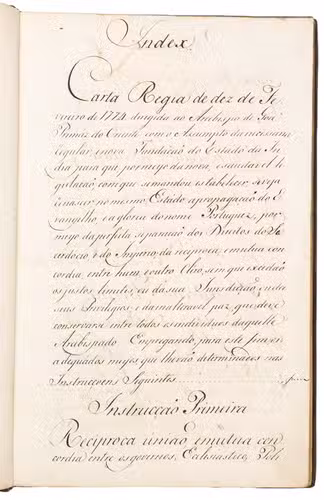 Index
Carta Regia de dez de Fe
vereiro de 1774 dirigida ao Arcebispo de Goa
Primaz do Oriente com o Assumpto da necessaria
regular, e nova Fundação do Estado da In
dia para que por meyo da nova, e saudavel le
gislação, com que se mandou estabelecer, se veja
renascer no mesmo Estado a propagação do E
vangelho, e a gloria do nome Portuguez, por
meyo da perfeita separação dos Direitos do Sa
cerdocio, e do Imperio, da reciproca, e mutua con
cordia entre hum, e outro
os justos limites, e da sua Jurisdicção,
seus Privilegios, e da inalteravel paz que deve
conservarse entre todos os individuos daquelle
Arcebispado. Empregando para este fim os
adequados meyos, que lhe vão determinados nas
Instrucçoens Seguintes
Instrucção Primeira
Reciproca união, e mutua con
cordia entre os governos, Ecclesiastico, Poli